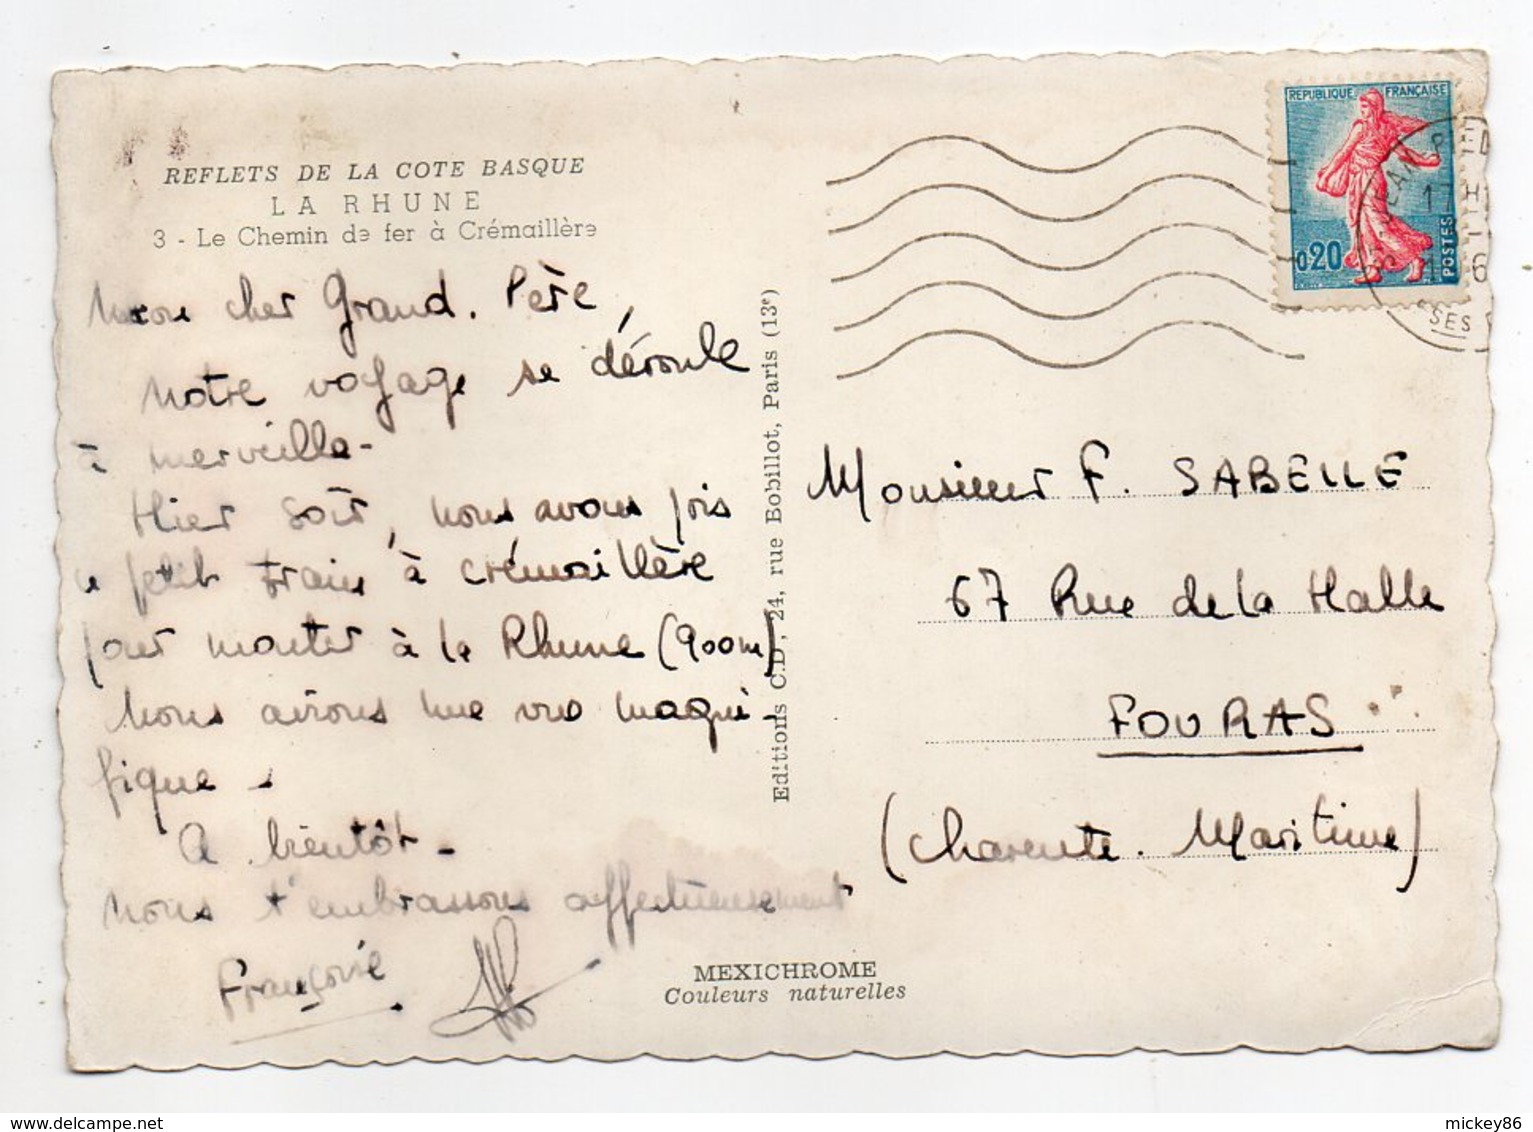 REFLETS DE LA COTE BASQUE
LA RHUNE
3 - Le Chemin de fer à Crémaillère
Mon cher Grand. Père,
Notre voyage se déroule
à merveille -
Hier soir, nous avons pris
le petit train à crémaillère
pour monter à la Rhune (900m)
Nous avions une vue magni-
fique -
A bientôt -
Nous t'embrassons affectueusement
Françoise
Editions C.D., 24, rue Bobillot, Paris (13e)
MEXICHROME
Couleurs naturelles
REPUBLIQUE FRANÇAISE
0,20
POSTES
Monsieur F. SABELLE
67 Rue de la Halle
FOURAS
(Charente. Maritime)
mickey86